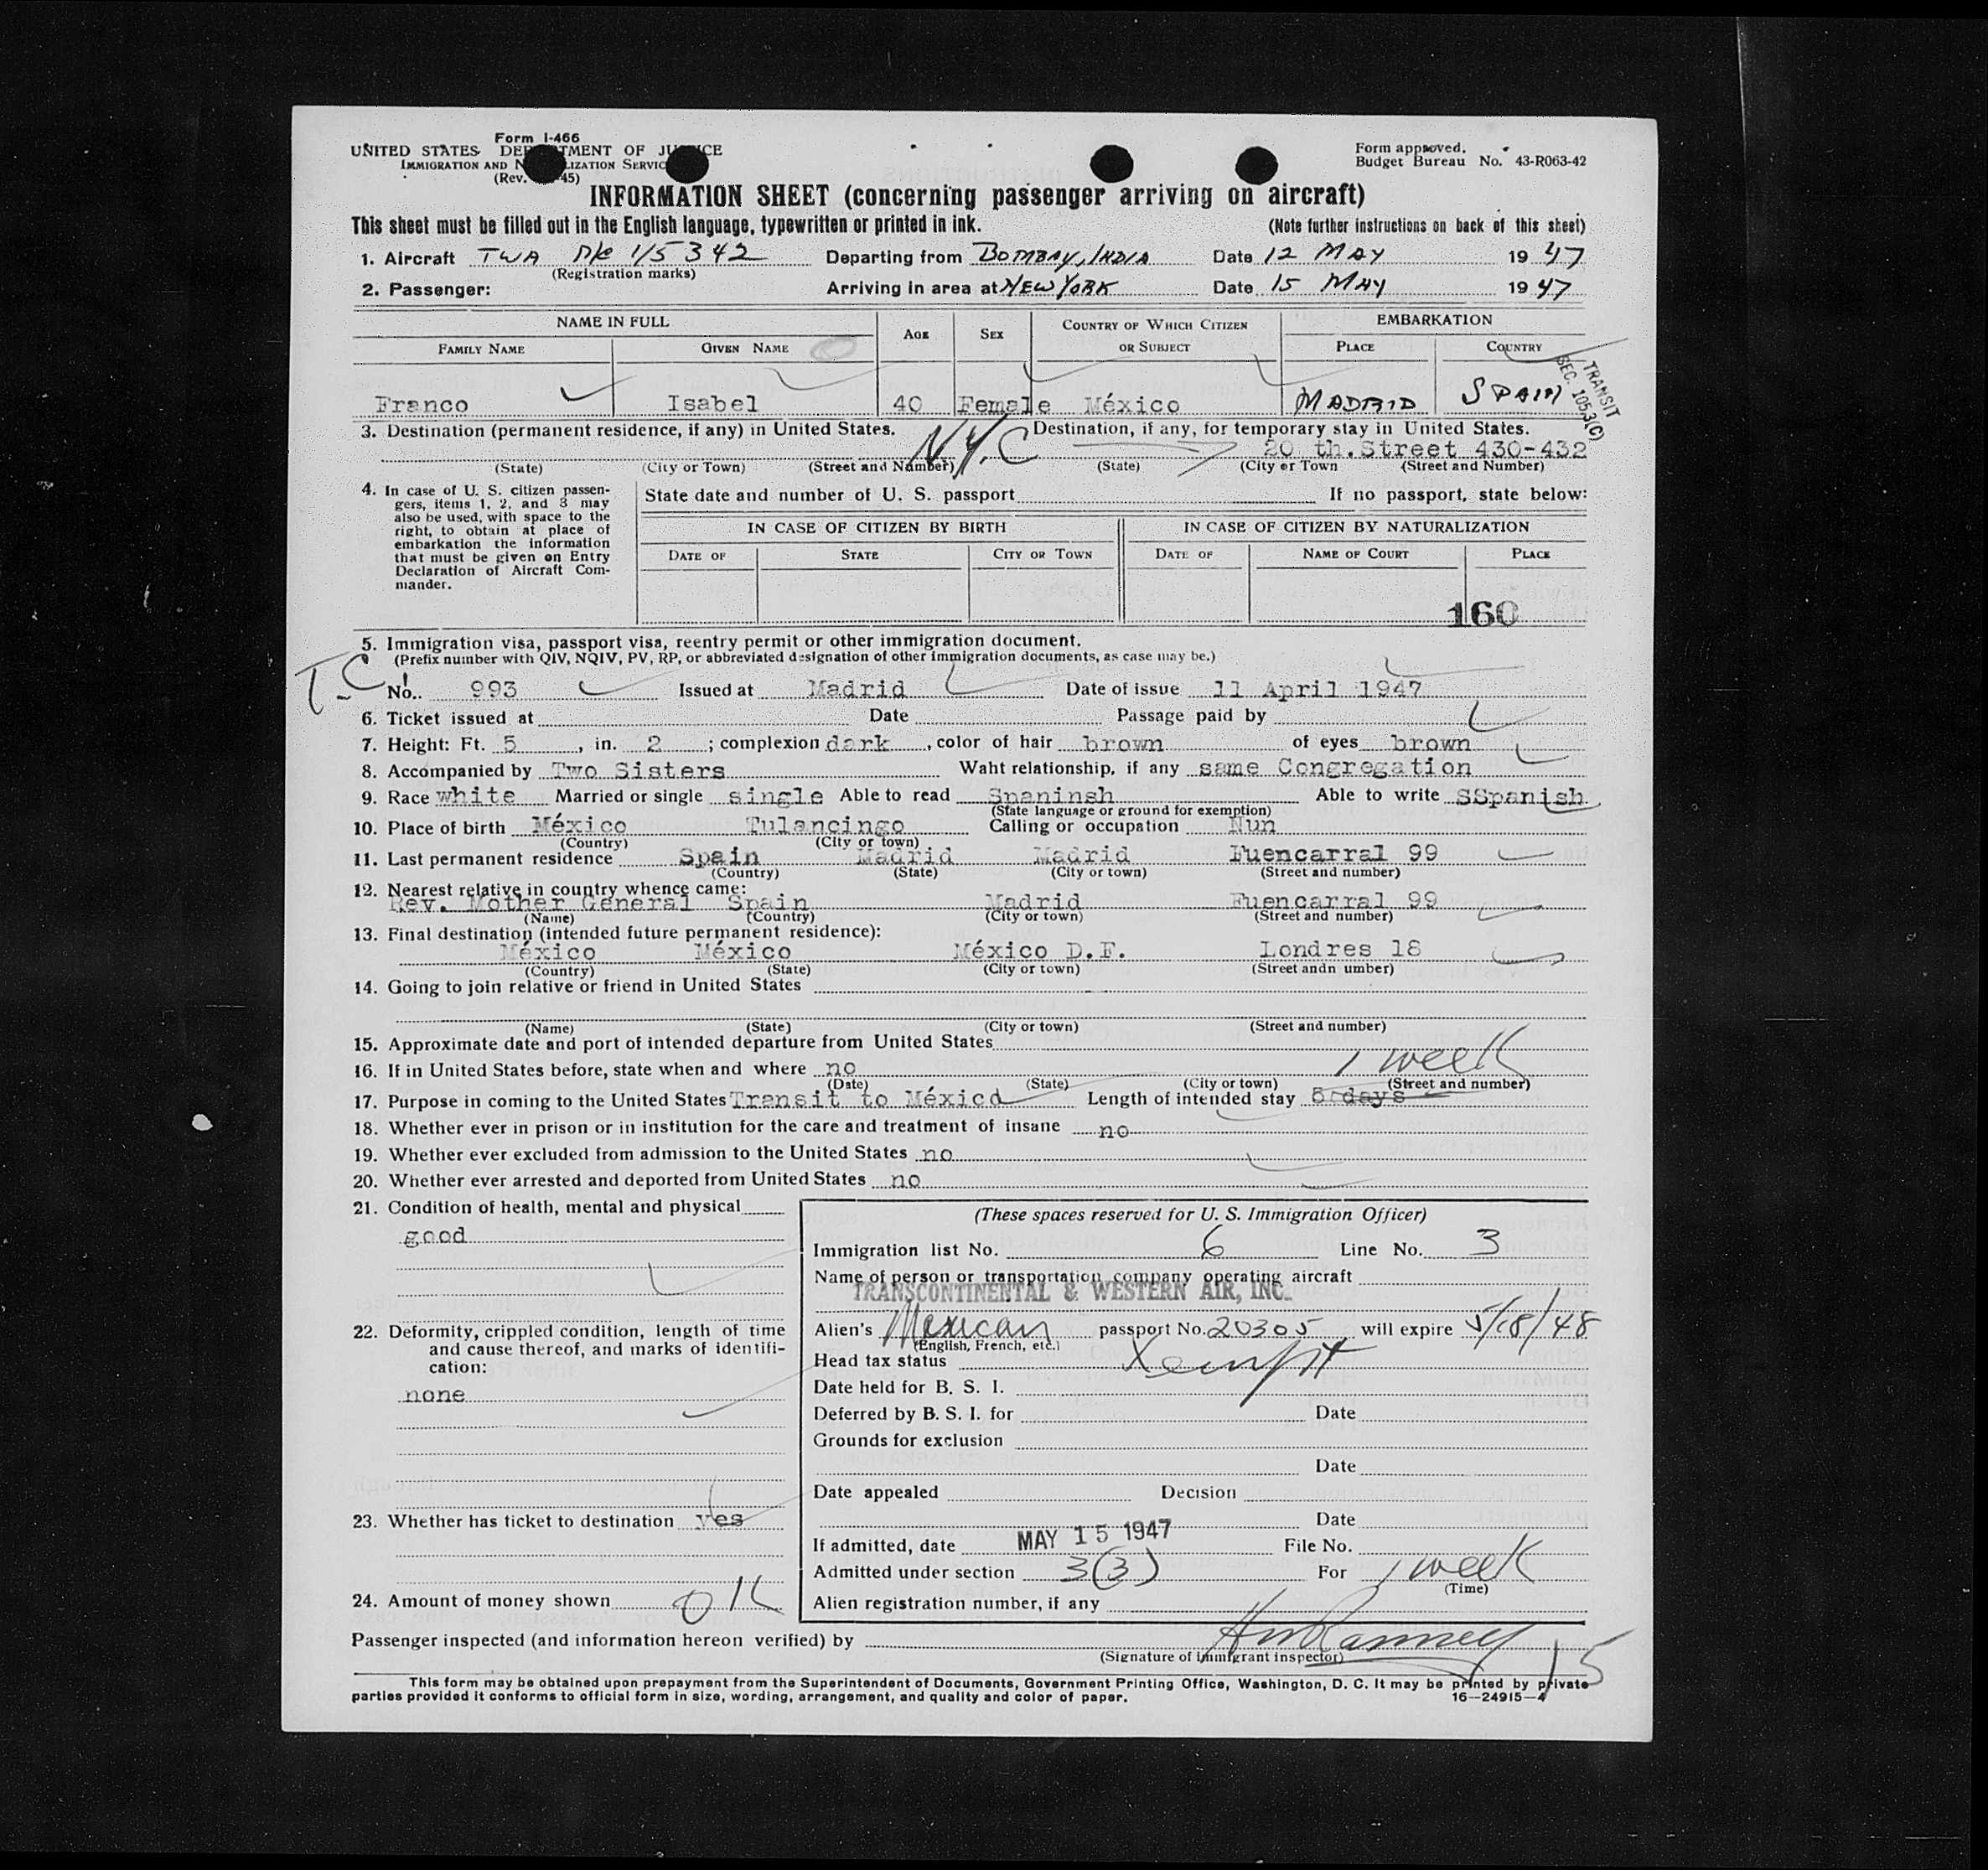 Form I-466
UNITED STATES DEPARTMENT OF JUSTICE
IMMIGRATION AND NATURALIZATION SERVICE
(Rev. 45)
Form approved.
Budget Bureau No. 43-R063-42
INFORMATION SHEET (concerning passenger arriving on aircraft)
This sheet must be filled out in the English language, typewritten or printed in ink. (Note further instructions on back of this sheet)
1. Aircraft TWA 15342 Departing from BOMBAY, INDIA Date 12 MAY 1947
(Registration marks)
2. Passenger: Arriving in area at NEW YORK Date 15 MAY 1947
NAME IN FULL AGE SEX COUNTRY OF WHICH CITIZEN OR SUBJECT EMBARKATION
FAMILY NAME GIVEN NAME PLACE COUNTRY
TRANSIT
SEC. 105.3(C)
Franco Isabel 40 Female México MADRID SPAIN
3. Destination (permanent residence, if any) in United States. Destination, if any, for temporary stay in United States.
N.Y.C 20 th.Street 430-432
(State) (City or Town) (Street and Number) (State) (City or Town (Street and Number)
4. In case of U. S. citizen passen-
gers, items 1, 2, and 3 may
also be used, with space to the
right, to obtain at place of
embarkation the information
that must be given on Entry
Declaration of Aircraft Com-
mander.
State date and number of U. S. passport If no passport, state below:
IN CASE OF CITIZEN BY BIRTH IN CASE OF CITIZEN BY NATURALIZATION
DATE OF STATE CITY OR TOWN DATE OF NAME OF COURT PLACE
160
5. Immigration visa, passport visa, reentry permit or other immigration document.
(Prefix number with QIV, NQIV, PV, RP, or abbreviated designation of other immigration documents, as case may be.)
T.C No. 993 Issued at Madrid Date of issue 11 April 1947
6. Ticket issued at Date Passage paid by
7. Height: Ft. 5, in. 2; complexion dark, color of hair brown of eyes brown
8. Accompanied by Two Sisters Waht relationship, if any same Congregation
9. Race white Married or single single Able to read Spaninsh Able to write SSpanish
(State language or ground for exemption)
10. Place of birth México Tulancingo Calling or occupation Nun
(Country) (City or town)
11. Last permanent residence Spain Madrid Madrid Fuencarral 99
(Country) (State) (City or town) (Street and number)
12. Nearest relative in country whence came:
Rev. Mother General Spain Madrid Fuencarral 99
(Name) (Country) (City or town) (Street and number)
13. Final destination (intended future permanent residence):
México México México D.F. Londres 18
(Country) (State) (City or town) (Street andn umber)
14. Going to join relative or friend in United States
(Name) (State) (City or town) (Street and number)
15. Approximate date and port of intended departure from United States
16. If in United States before, state when and where no 1 week
(Date) (State) (City or town) (Street and number)
17. Purpose in coming to the United States Transit to México Length of intended stay 5 days
18. Whether ever in prison or in institution for the care and treatment of insane no
19. Whether ever excluded from admission to the United States no
20. Whether ever arrested and deported from United States no
21. Condition of health, mental and physical
good
22. Deformity, crippled condition, length of time
and cause thereof, and marks of identifi-
cation:
none
23. Whether has ticket to destination yes
24. Amount of money shown OK
(These spaces reserved for U. S. Immigration Officer)
Immigration list No. 6 Line No. 3
Name of person or transportation company operating aircraft
TRANSCONTINENTAL & WESTERN AIR, INC.
Alien's Mexican passport No. 20305 will expire 5/18/48
(English, French, etc.)
Head tax status Xempt
Date held for B. S. I.
Deferred by B. S. I. for Date
Grounds for exclusion
Date
Date appealed Decision
Date
If admitted, date MAY 15 1947 File No.
Admitted under section 3(3) For 1 week
(Time)
Alien registration number, if any
Passenger inspected (and information hereon verified) by
(Signature of immigrant inspector)
15
This form may be obtained upon prepayment from the Superintendent of Documents, Government Printing Office, Washington, D. C. It may be printed by private
parties provided it conforms to official form in size, wording, arrangement, and quality and color of paper. 16—24915-4